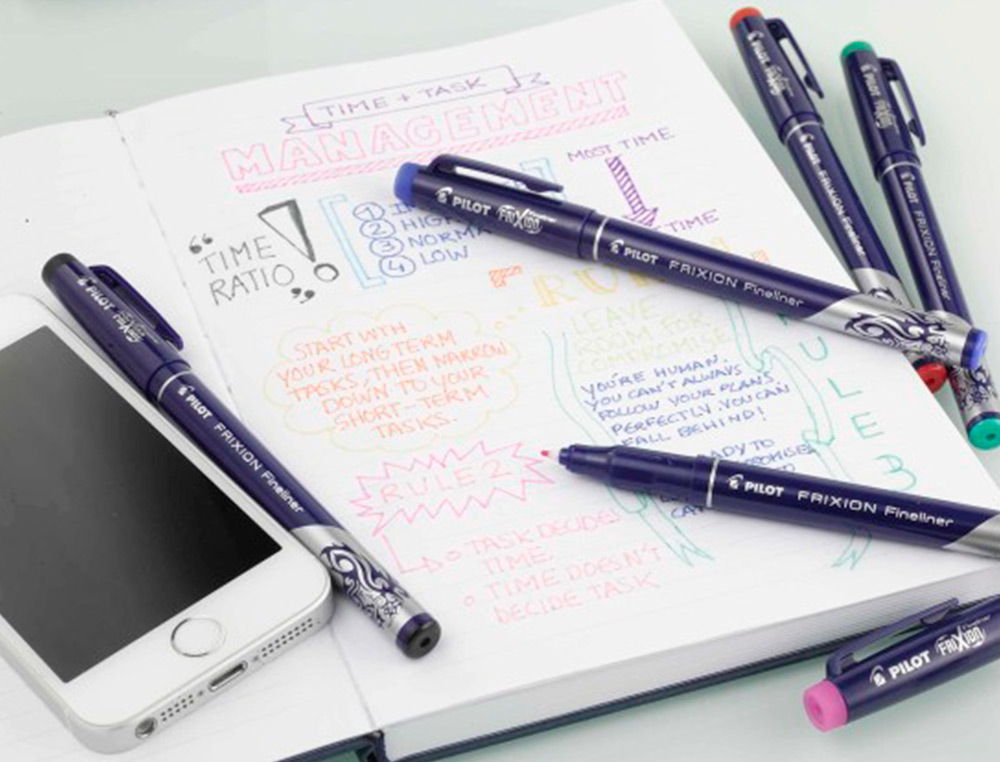 TIME + TASK
MANAGEMENT
MOST TIME
TIME
"TIME
RATIO"!
1
2 HIGH
3 NORMA
4 LOW
START WTH
YOUR LONG TERM
TASKS, THEN NARROW
DOWN TO YOUR
SHORT-TERM
TASKS.
LEAVE
ROOM FOR
COMPROMISE
YOU'RE HUMAN.
YOU CAN'T ALWAYS
FOLLOW YOUR PLANS
PERFECTLY. YOU CAN
FALL BEHIND!
ADY TO
RULE 3
RULE 2
TASK DECIDES
TIME.
TIME DOESN'T
DECIDE TASK
PILOT FRIXION
PILOT FRIXION Fineliner
PILOT FRIXION
PILOT FRIXION Fineliner
PILOT FRIXION
PILOT FRIXION Fineliner
PILOT FRIXION
PILOT FRIXION Fineliner
PILOT FRIXION Fineliner
PILOT FRIXION